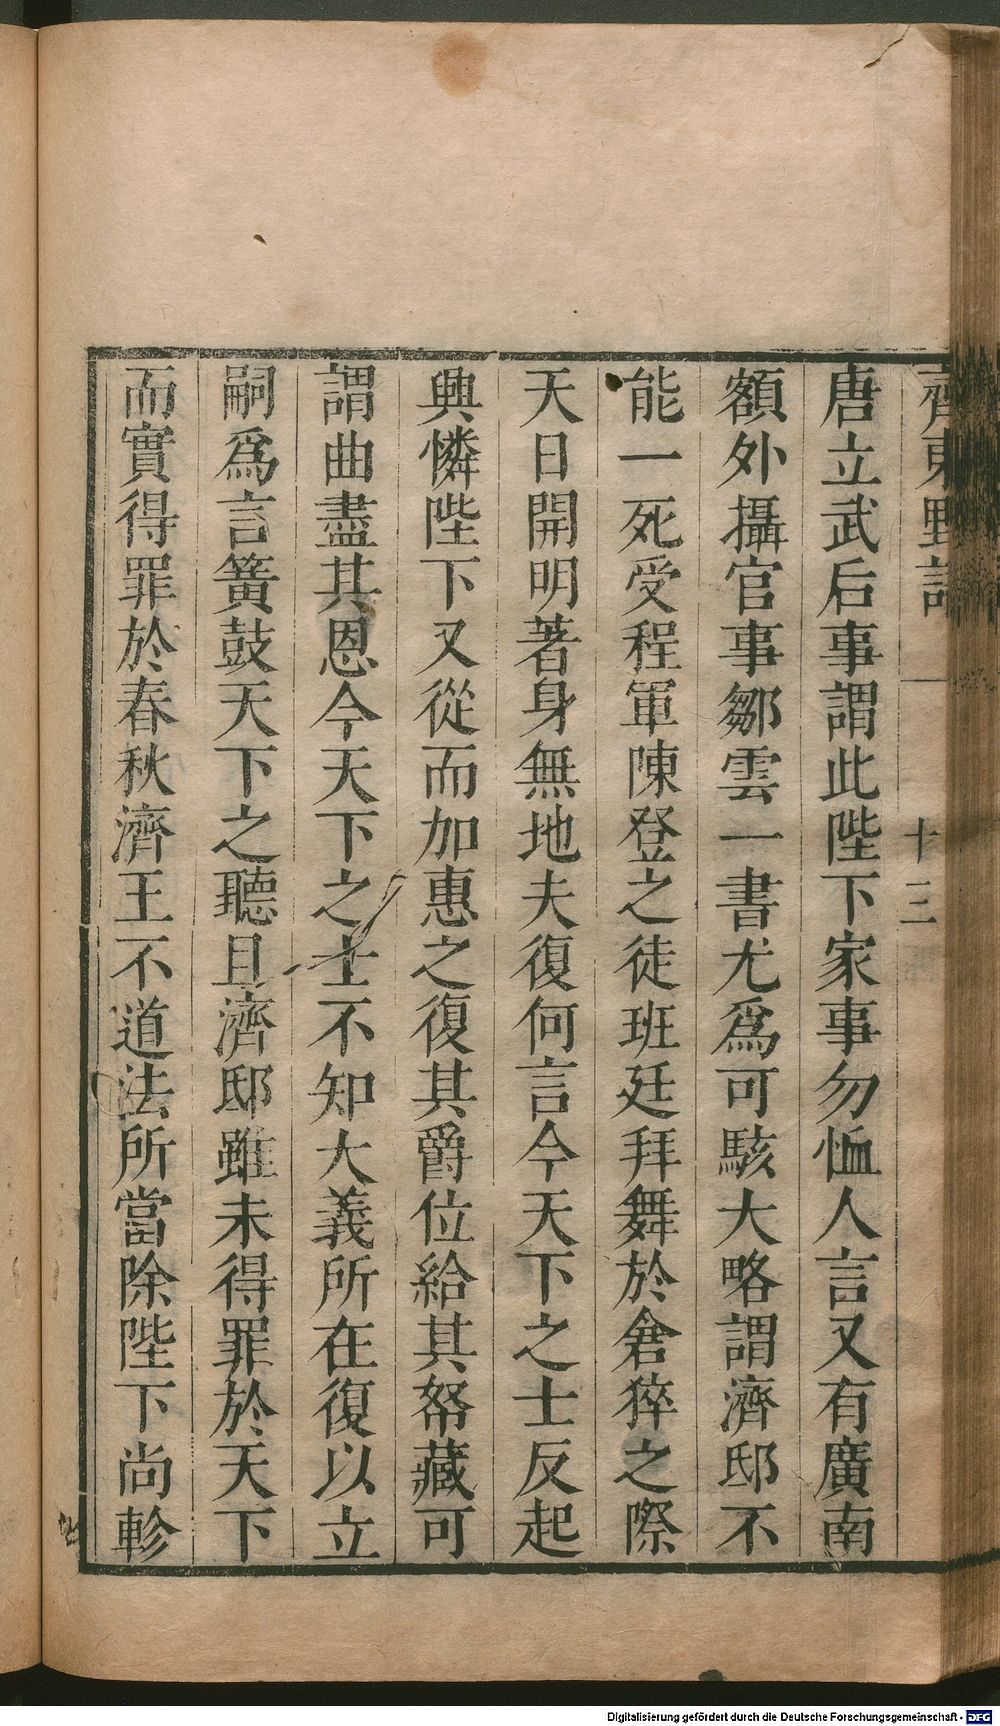 齊東野語 十三
唐立武后事謂此陛下家事勿恤人言又有廣南
額外攝官事鄒雲一書尤爲可駭大略謂濟邸不
能一死受程軍陳登之徒班廷拜舞於倉猝之際
天日開明著身無地夫復何言今天下之士反起
興憐陛下又從而加惠之復其爵位給其帑藏可
謂曲盡其恩今天下之士不知大義所在復以立
嗣爲言簧鼓天下之聽且濟邸雖未得罪於天下
而實得罪於春秋濟王不道法所當除陛下尚軫
Digitalisierung gefördert durch die Deutsche Forschungsgemeinschaft - DFG